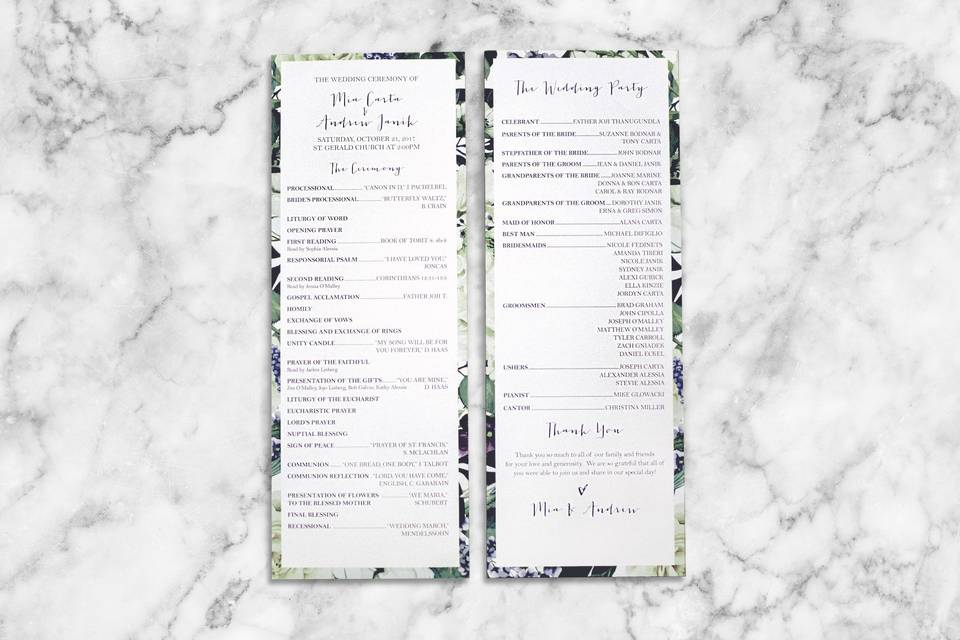 THE WEDDING CEREMONY OF
Mia Carta
&
Andrew Janik
SATURDAY, OCTOBER 21, 2017
ST. GERALD CHURCH AT 2:00PM
The Ceremony
PROCESSIONAL "CANON IN D," J. PACHELBEL
BRIDE'S PROCESSIONAL "BUTTERFLY WALTZ,"
B. CRAIN
LITURGY OF WORD
OPENING PRAYER
FIRST READING BOOK OF TOBIT 8: 4b-8
Read by Sophia Alessia
RESPONSORIAL PSALM "I HAVE LOVED YOU,"
JONCAS
SECOND READING CORINTHIANS 12:31-13:8
Read by Jenna O'Malley
GOSPEL ACCLAMATION FATHER JOJI T.
HOMILY
EXCHANGE OF VOWS
BLESSING AND EXCHANGE OF RINGS
UNITY CANDLE "MY SONG WILL BE FOR
YOU FOREVER," D. HAAS
PRAYER OF THE FAITHFUL
Read by Jackie
PRESENTATION OF THE GIFTS "YOU ARE MINE,"
Jim O'Malley, Bob Galvin, Kathy Alessia D. HAAS
LITURGY OF THE EUCHARIST
EUCHARISTIC PRAYER
LORD'S PRAYER
NUPTIAL BLESSING
SIGN OF PEACE "PRAYER OF ST. FRANCIS,"
S. MCLACHLAN
COMMUNION "ONE BREAD, ONE BODY," J. TALBOT
COMMUNION REFLECTION "LORD, YOU HAVE COME,"
ENGLISH, C. GABARAIN
PRESENTATION OF FLOWERS "AVE MARIA,"
TO THE BLESSED MOTHER SCHUBERT
FINAL BLESSING
RECESSIONAL "WEDDING MARCH,"
MENDELSSOHN
The Wedding Party
CELEBRANT FATHER JOJI THANUGUNDLA
PARENTS OF THE BRIDE SUZANNE BODNAR &
TONY CARTA
STEPFATHER OF THE BRIDE JOHN BODNAR
PARENTS OF THE GROOM JEAN & DANIEL JANIK
GRANDPARENTS OF THE BRIDE JOANNE MARINE
DONNA & RON CARTA
CAROL & RAY BODNAR
GRANDPARENTS OF THE GROOM DOROTHY JANIK
ERNA & GREG SIMON
MAID OF HONOR ALANA CARTA
BEST MAN MICHAEL DIFIGLIO
BRIDESMAIDS NICOLE FEDINETS
AMANDA TIBERI
NICOLE JANIK
SYDNEY JANIK
ALEXI GURICK
ELLA KINZIE
JORDYN CARTA
GROOMSMEN BRAD GRAHAM
JOHN CIPOLLA
JOSEPH O'MALLEY
MATTHEW O'MALLEY
TYLER CARROLL
ZACH GNIADEK
DANIEL ECKEL
USHERS JOSEPH CARTA
ALEXANDER ALESSIA
STEVIE ALESSIA
PIANIST MIKE GLOWACKI
CANTOR CHRISTINA MILLER
Thank You
Thank you so much to all of our family and friends
for your love and generosity. We are so grateful that all of
you were able to join us and share in our special day!
Mia & Andrew